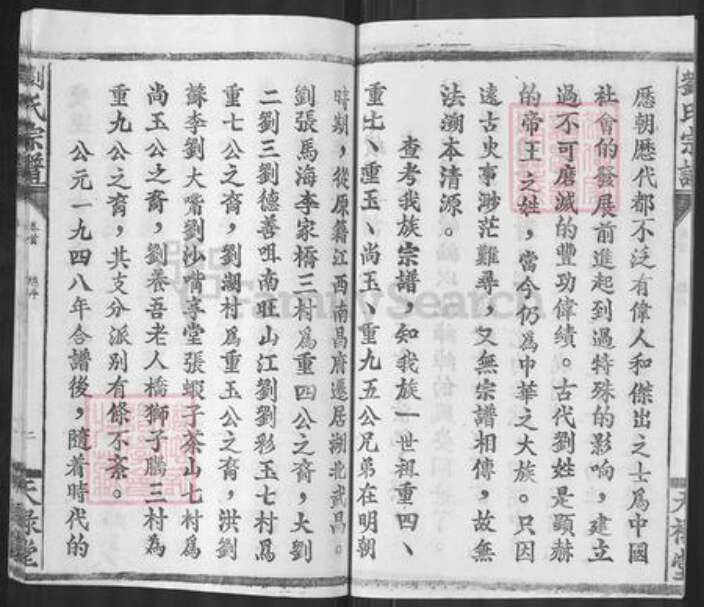 歷朝歷代都不泛有偉人和傑出之士爲中國
社會的發展前進起到過特殊的影响，建立
過不可磨滅的豐功偉績。古代劉姓是顕赫
的帝王之姓，當今仍爲中华之大族。只因
遠古史事渺茫難尋，又無宗譜相傳，故無
法溯本清源。
查考我族宗譜，知我族一世祖重四、
重七、重玉、尚玉、重九五公兄弟在明朝
時期，從原籍江西南昌府遷居湖北武昌。
劉張馬海李家橋三村爲重四公之裔，大劉
二劉三劉德善咀南旺山江劉劉彩玉七村爲
重七公之裔，劉湖村爲重玉公之裔，洪劉
蘇李劉大嘴劉沙嘴享堂張蝦子茶山七村爲
尚玉公之裔，劉養吾老人橋獅子腦三村為
重九公之裔，其支分派别有條不紊。
公元一九四八年合譜後，隨着時代的
劉氏宗譜
卷首
二
天祿堂
劉氏宗譜
天祿堂
FamilySearch